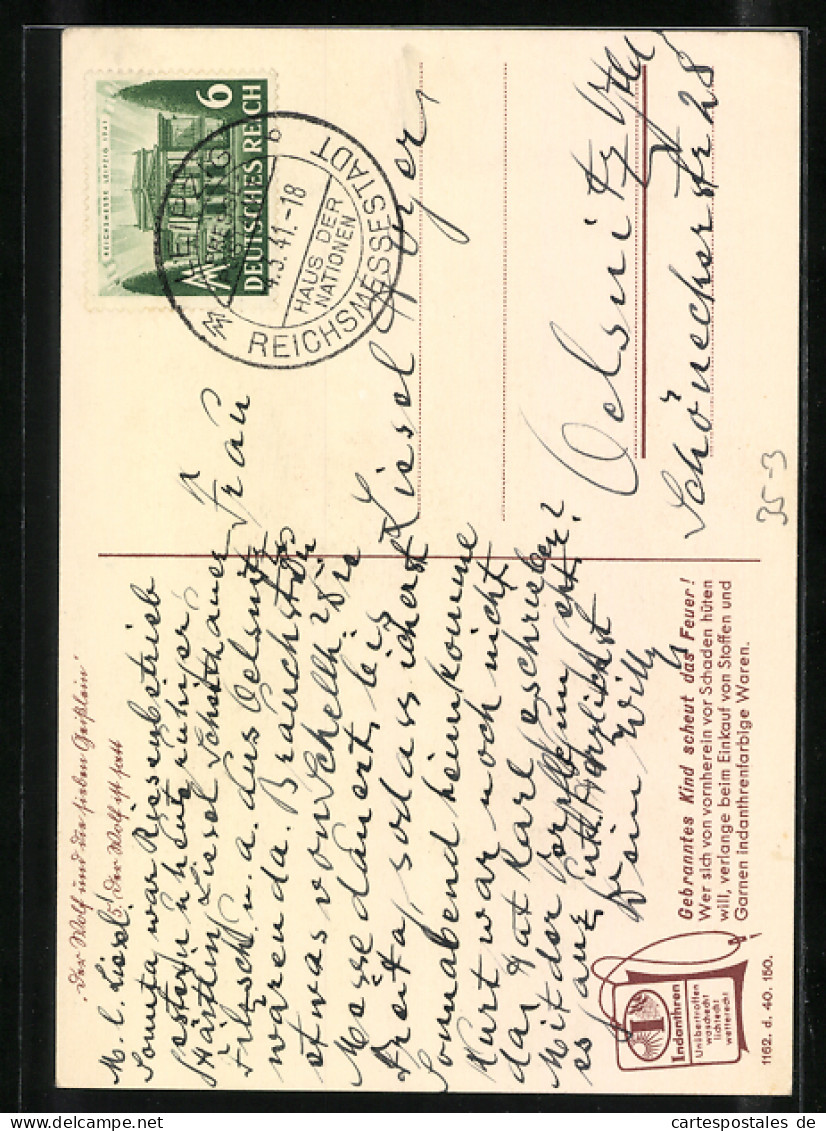 „Der Wolf und die sieben Geißlein“
5. Der Wolf ist satt
M. l. Liesel!
Sonntag war Riesenbetrieb
gestern u heute ruhiger,
Härtlin, Liesel Schotthauer
Fitsch. u. a. aus Oelsnitz
waren da. Brauchst Du
etwas von Schellh? Die
Messe dauert bis
Freitag, sodass ich erst
Sonnabend heimkomme
Kurt war noch nicht
da. Hat Karl geschrieben?
Mit der Verpflegung geht
es ganz gut. Herzlichst
Dein Willy
Gebranntes Kind scheut das Feuer!
Wer sich von vornherein vor Schaden hüten
will, verlange beim Einkauf von Stoffen und
Garnen indanthrenfarbige Waren.
Indanthren
Unübertroffen
waschecht
lichtecht
wetterecht
1162. d. 40. 150.
REICHSMESSE LEIPZIG 1941
6
DEUTSCHES REICH
LEIPZIG
b
4.3.41.-18
HAUS DER
NATIONEN
REICHSMESSESTADT
Frau
Liesel
Oelsnitz Vgtl
Schöneckerstr 28
35-3
cartespostales.de